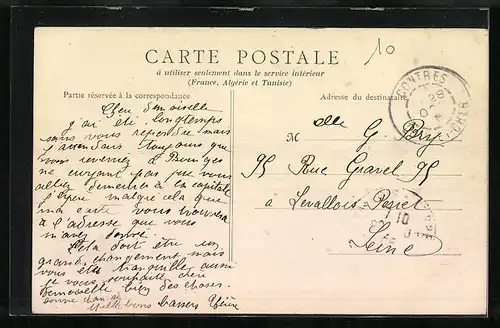 10
CARTE POSTALE
à utiliser seulement dans le service intérieur
(France, Algérie et Tunisie)
Partie réservée à la correspondance
Adresse du destinataire
Chère demoiselle
j'ai été longtemps
sans vous repondre mais
j'attendais toujours que
vous reveniez à Bourges
ne croyant pas que vous
alliez demeurer à la capitale
j'espère malgré cela que
ma carte vous trouvera
à l'adresse que vous
m'avez donné.
Cela doit être un
grand changement mais
vous êtes tranquille aussi
je vous souhaite chère
demoiselle bien des choses.
baisers
CONTRES
28
CHER
M elle G. Bry
95 Rue Gravel 95
à Levallois-Perret
Seine